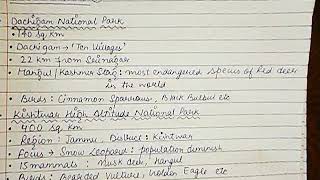 Dachigam National Park
• 140 sq. km
• Dachigam → 'Ten Villages'
• 22 km from Srinagar
• Hangul / Kashmir Stag : most endangered species of Red deer
in the world
• Birds : Cinnamon Sparrows, Black Bulbul etc
Kishtwar High Altitude National Park
• 400 sq. km
• Region : Jammu, District : Kishtwar
• Focus → Snow Leopard : population diminish
• 15 mammals : Musk deer, hangul
• Birds : Bearded Vulture, Golden Eagle etc